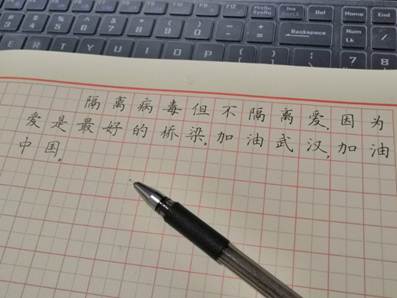 F7 F8 F9 F10 F11 F12 PrtSc SysRq Ins Del Home End
Backspace Num Lk /
隔离病毒但不隔离爱,因为
爱是最好的桥梁。加油武汉,加油
中国。